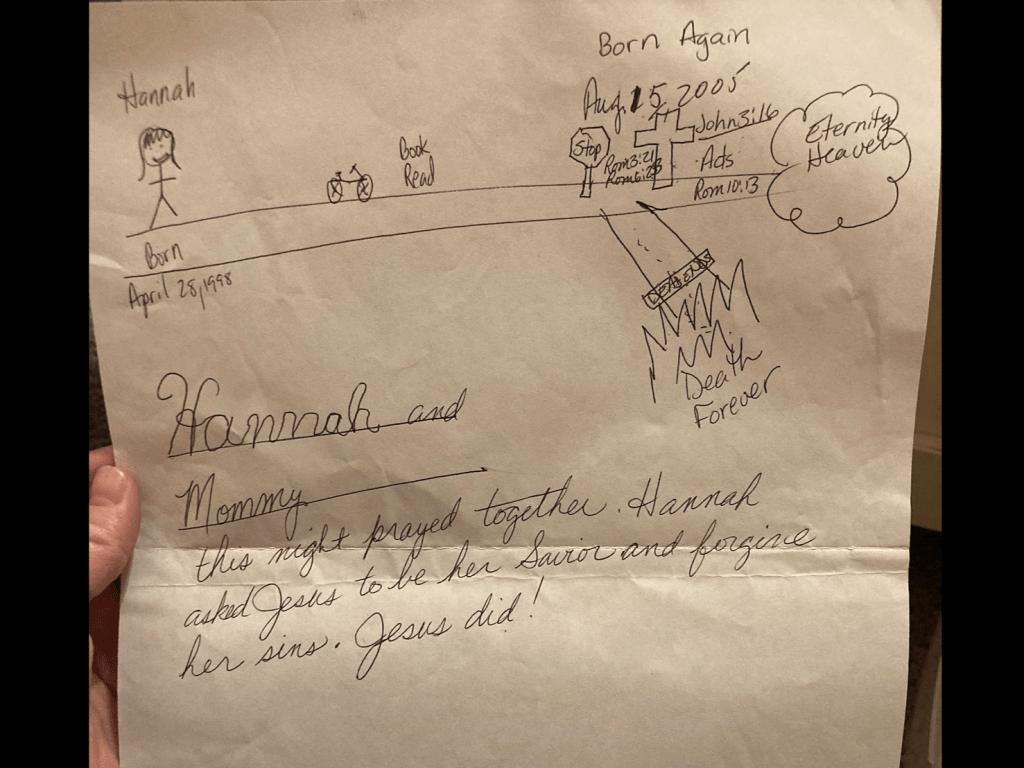 Born Again
Hannah
Aug 15 2005
John 3:16
Eternity
Heaven
Stop
Book
Read
Rom 3:21
Rom 6:23
Ads
Rom 10:13
Born
April 28, 1998
Death
Forever
Hannah and
Mommy
this night prayed together. Hannah
asked Jesus to be her Savior and forgive
her sins. Jesus did!